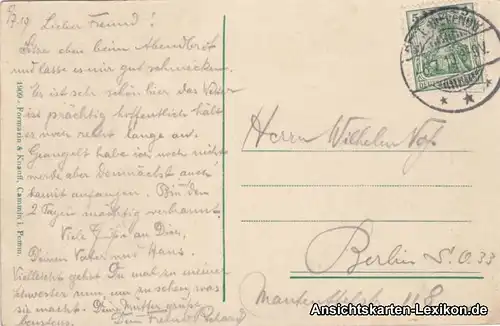 17.19
Lieber Freund!
Sitze eben beim Abendbrot
und lasse es mir gut schmecken.
Es ist sehr schön hier das Wetter
ist prächtig hoffentlich hält
es noch recht lange an.
Geangelt habe ich noch nicht
werde aber demnächst auch
damit anfangen. Bin den
2 Tagen mächtig verbrannt.
Viele Grüßen an Dir,
Deinen Vater und Hans.
Vielleicht gehst Du mal zu meiner
Schwester um zu sehen was
sie macht. Deine Mutter grüße
Dein Freund Richard
1909 - Formazin & Knauff, Cammin i. Pom.
5
Herrn Wilhelm
Berlin S.O. 33
118
Ansichtskarten-Lexikon.de